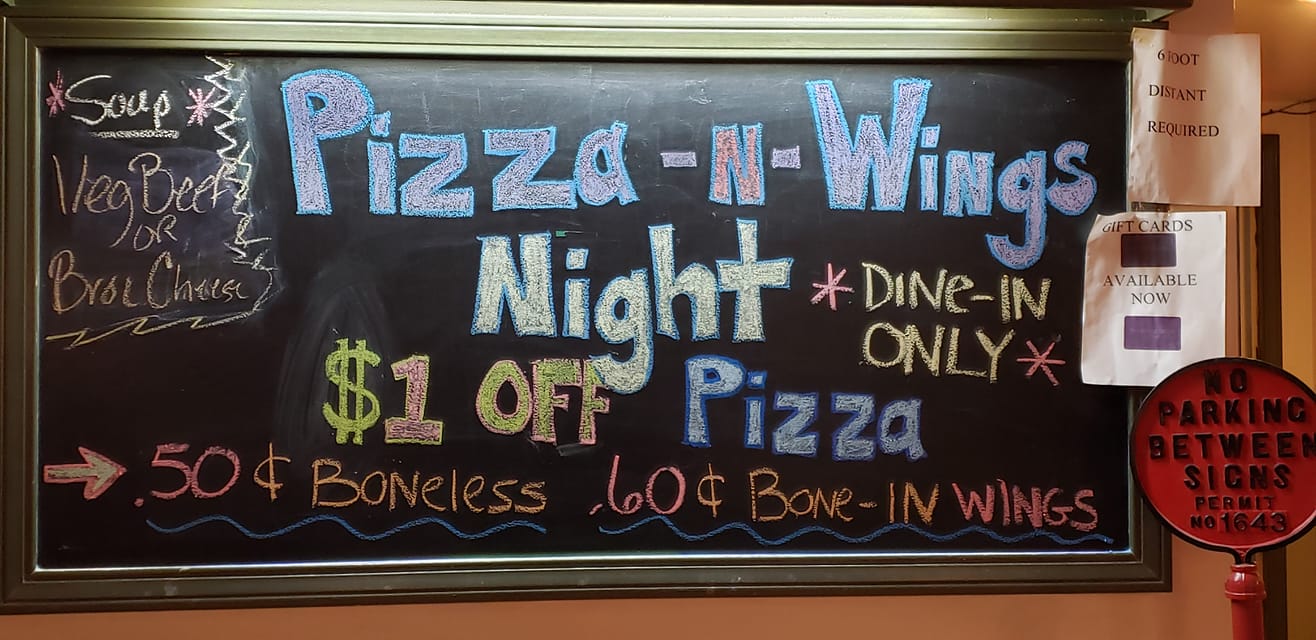 *Soup*
Veg Beef
OR
Broc Cheese
Pizza-N-Wings
Night
*DINe-IN
ONLY*
$1 OFF Pizza
→ .50¢ BoNeless .60¢ BoNe-IN WINGS
6 FOOT
DISTANT
REQUIRED
GIFT CARDS
AVAILABLE
NOW
NO
PARKING
BETWEEN
SIGNS
PERMIT
NO 1643